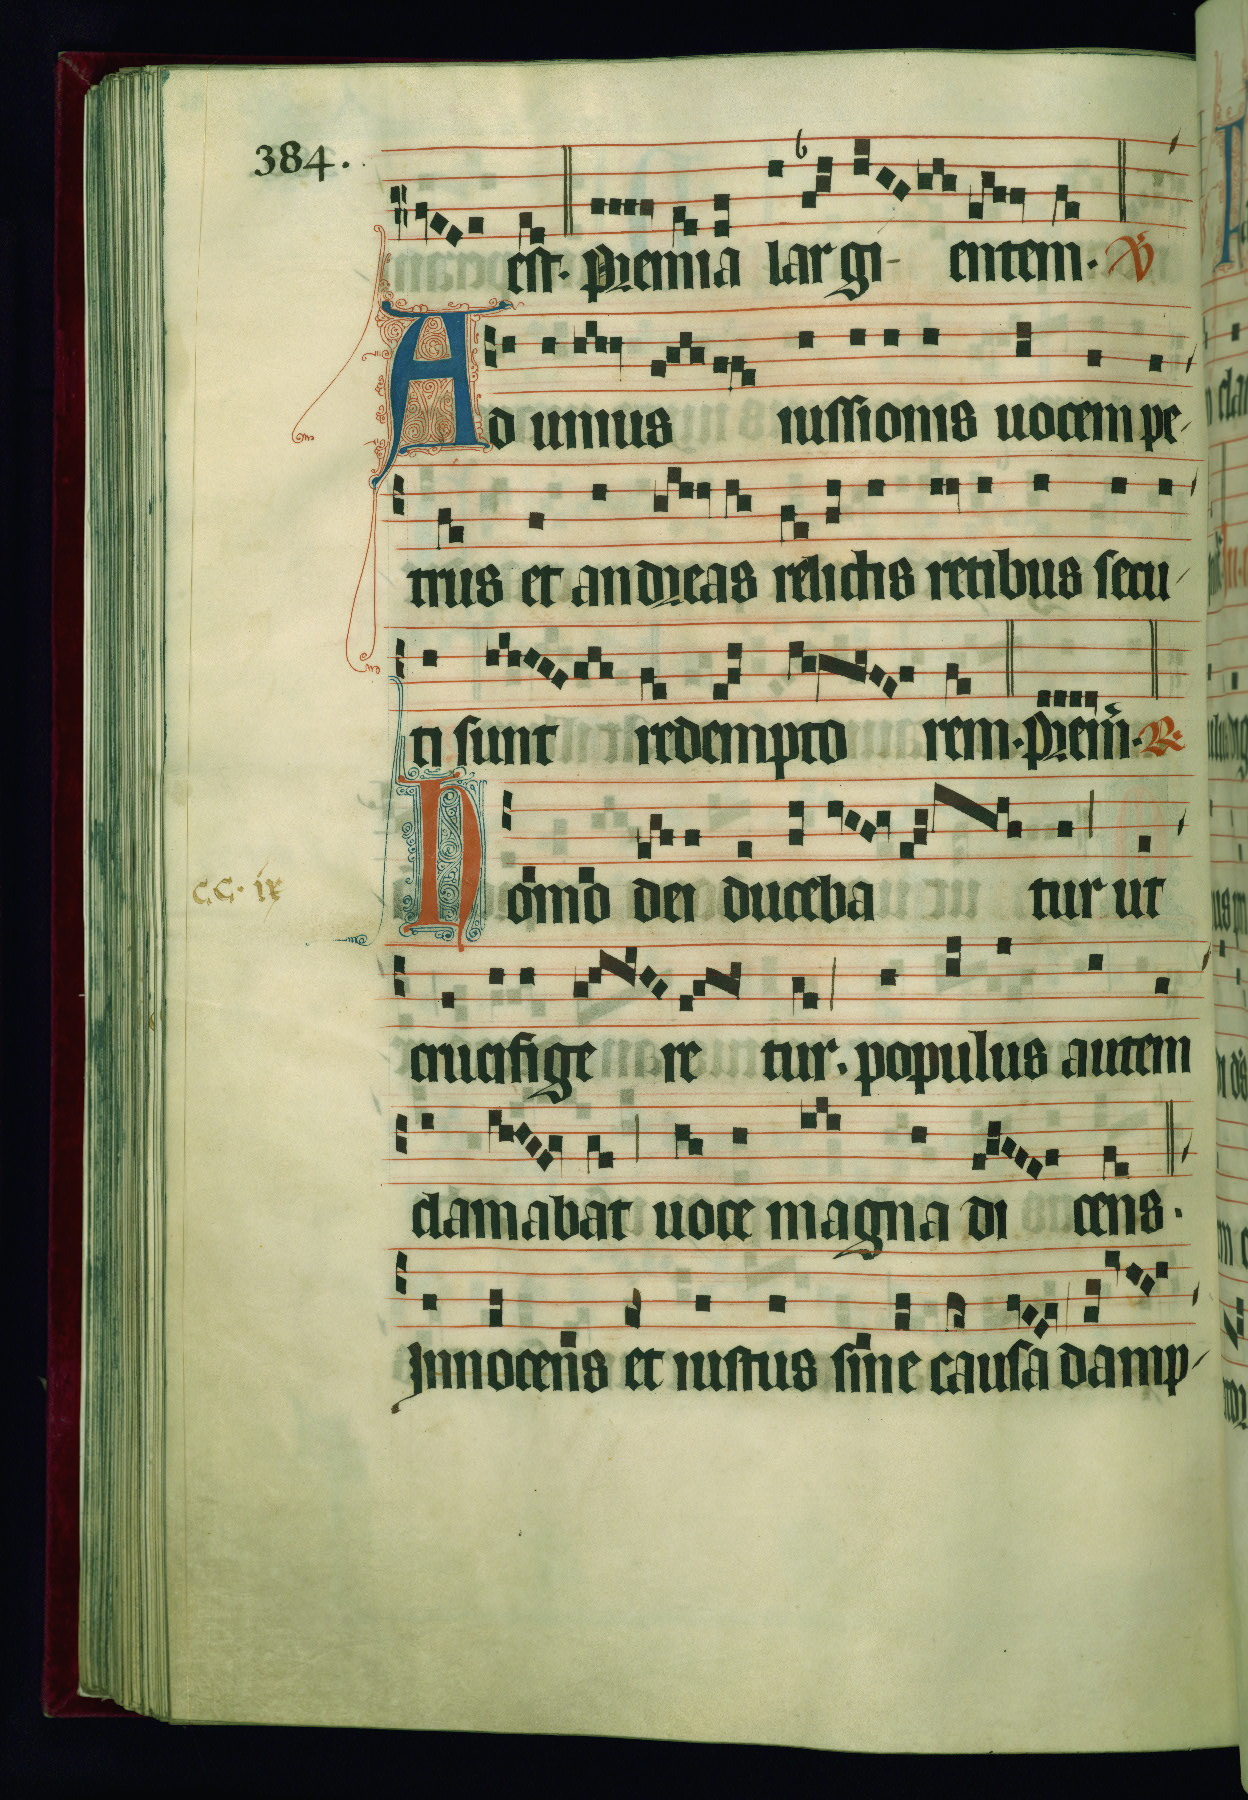 384.
est. premia largi- entem. V
Ad unius iussionis uocem pe-
trus et andreas relictis retibus secu-
ti sunt redempto rem. Prem̄. R.
Homo dei duceba tur ut
CC. ix
crucifige re tur. populus autem
clamabat uoce magna di cens.
Innocens et iustus sine causa damp-